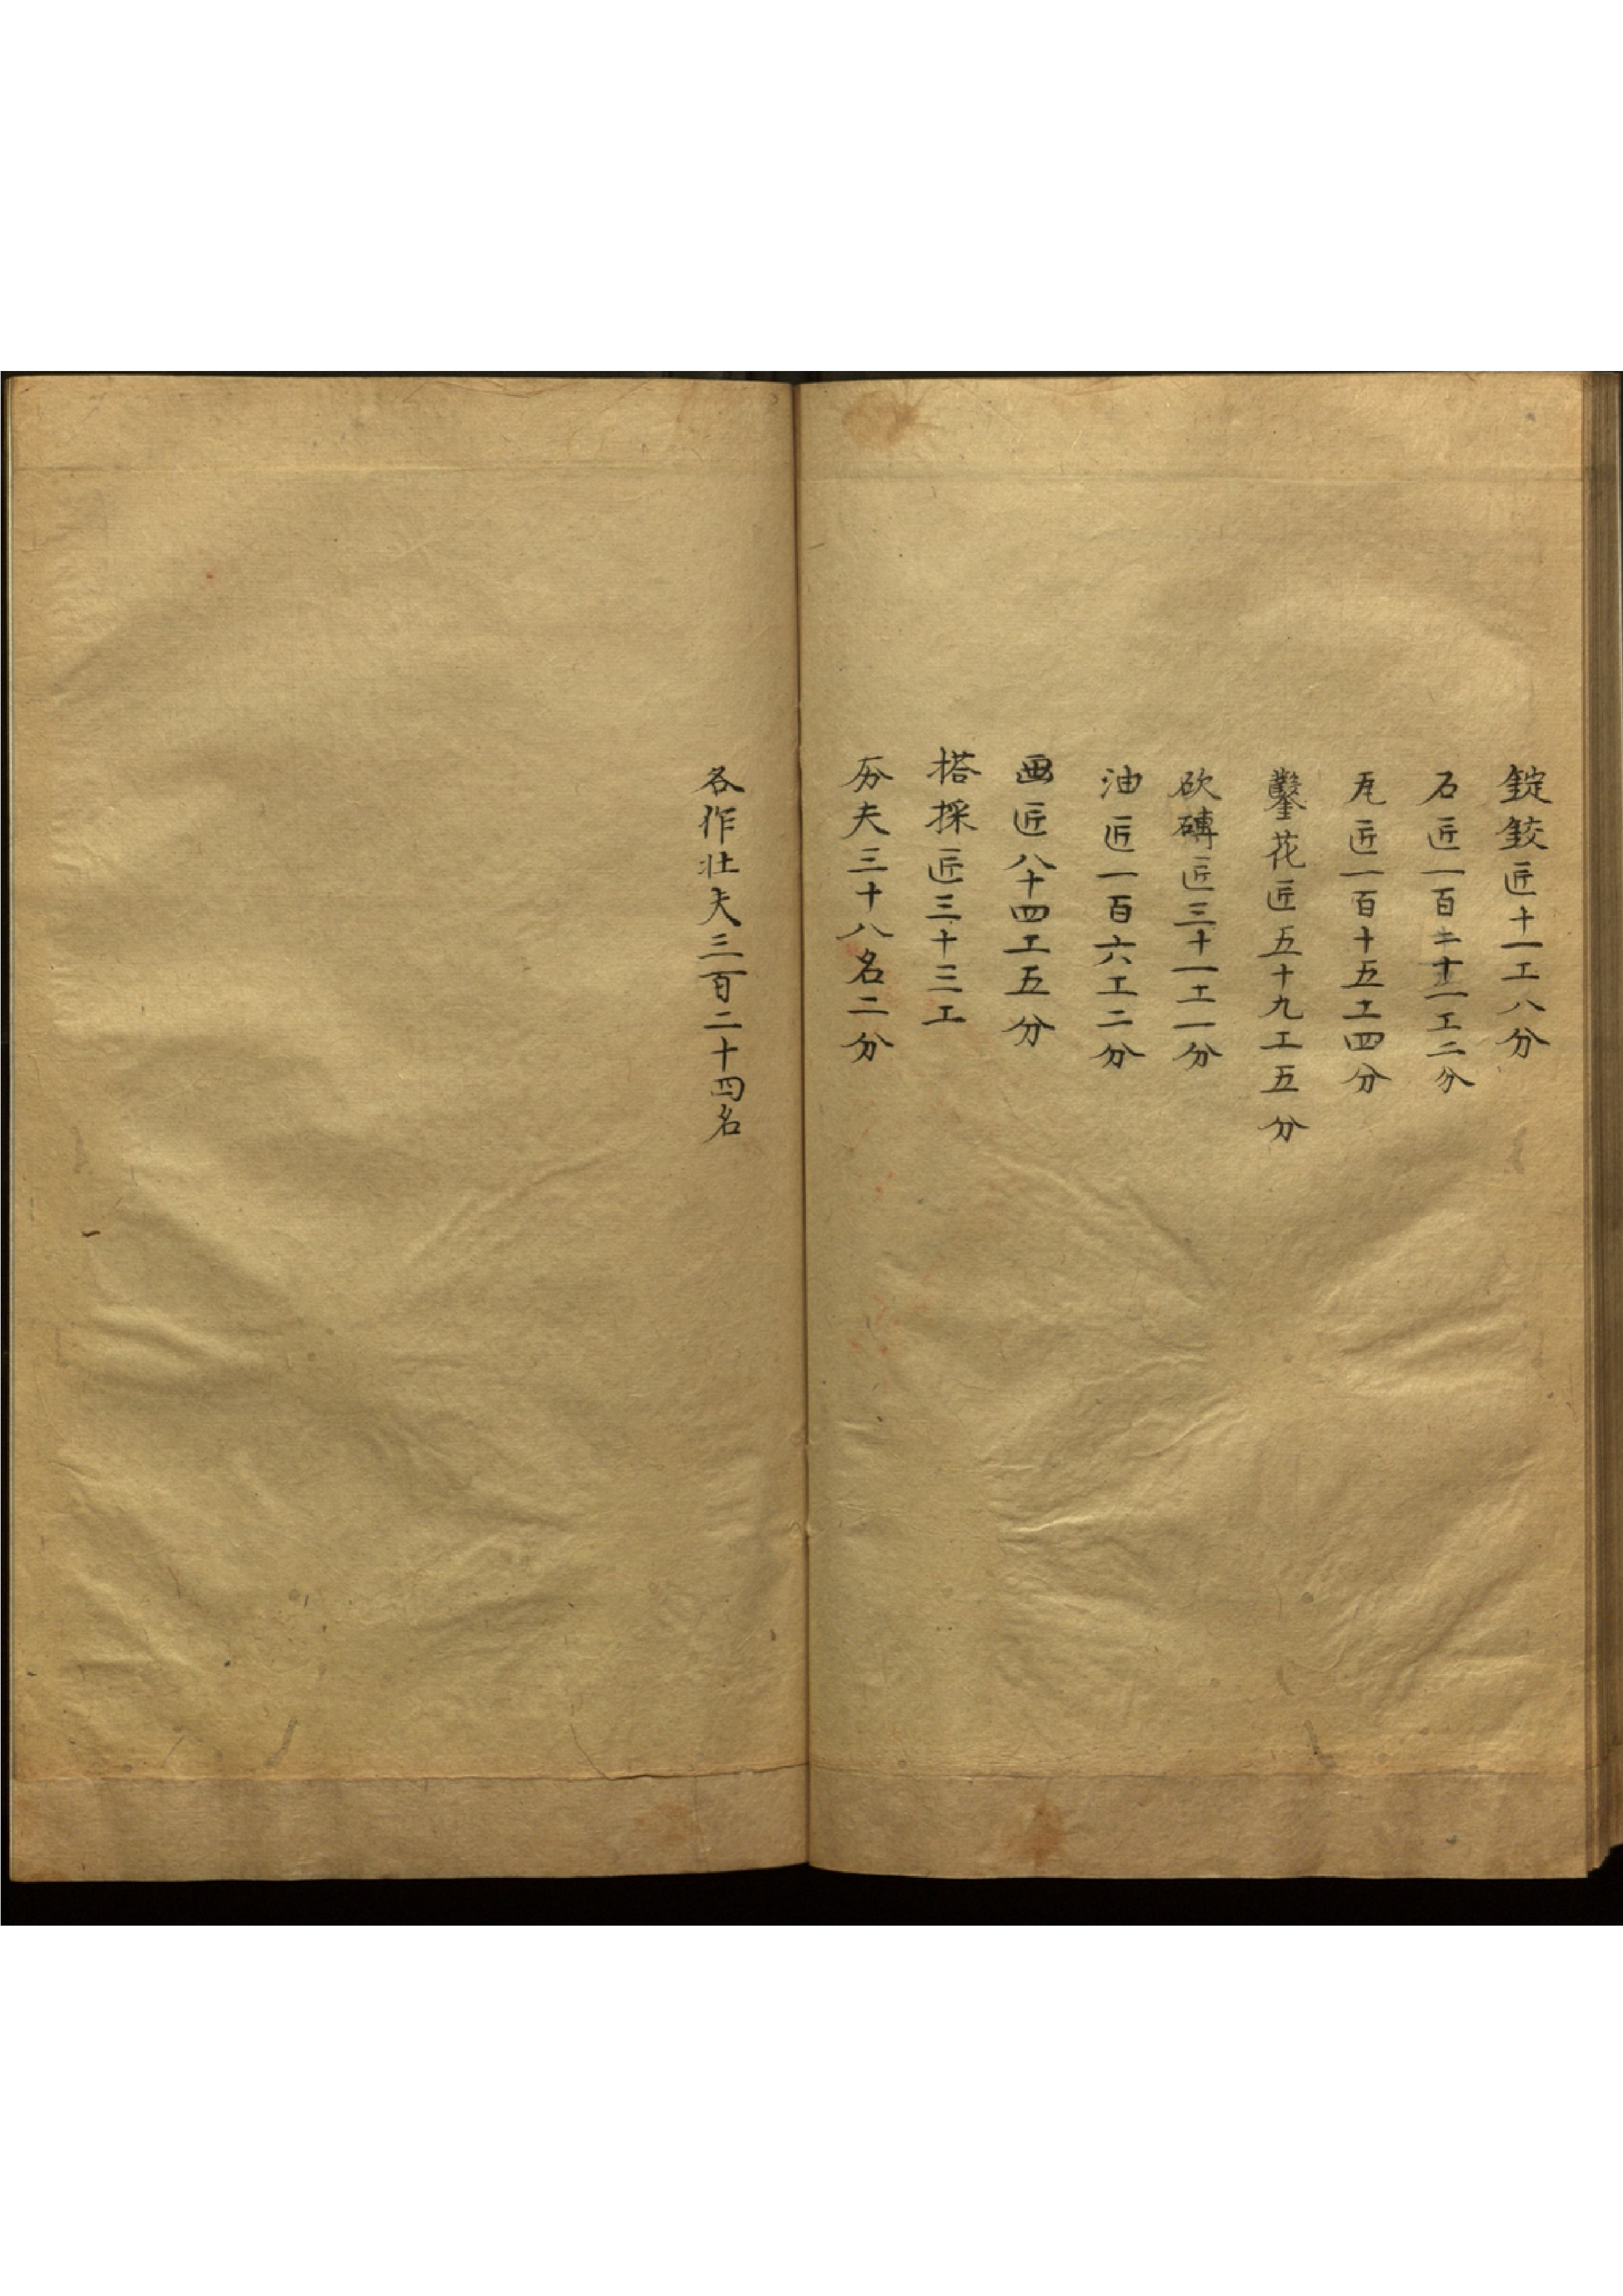 錠鉸匠十一工八分
石匠一百二十一工二分
瓦匠一百十五工四分
鑿花匠五十九工五分
砍磚匠三十一工一分
油匠一百六工二分
画匠八十四工五分
搭採匠三十三工
夯夫三十八名二分
各作壮夫三百二十四名